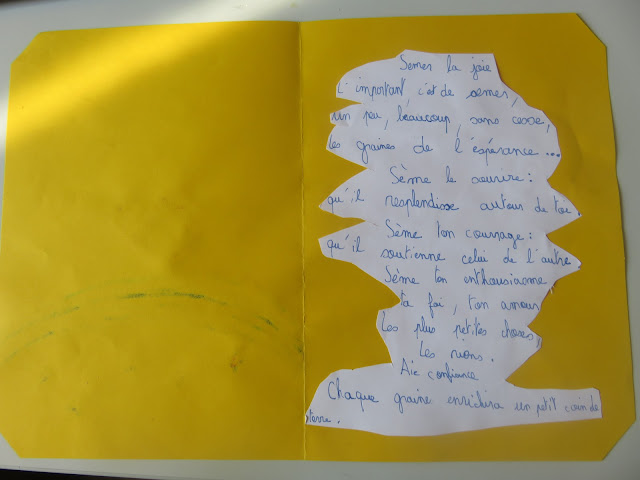 Semer la joie
L'important c'est de semer,
un peu, beaucoup, sans cesse,
les graines de l'éspérance...
Sème le sourire:
qu'il resplendisse autour de toi.
Sème ton courrage:
qu'il soutienne celui de l'autre
Sème ton enthousiasme
ta foi, ton amour
Les plus petites choses,
Les riens.
Aie confiance
Chaque graine enrichira un petit coin de
terre.